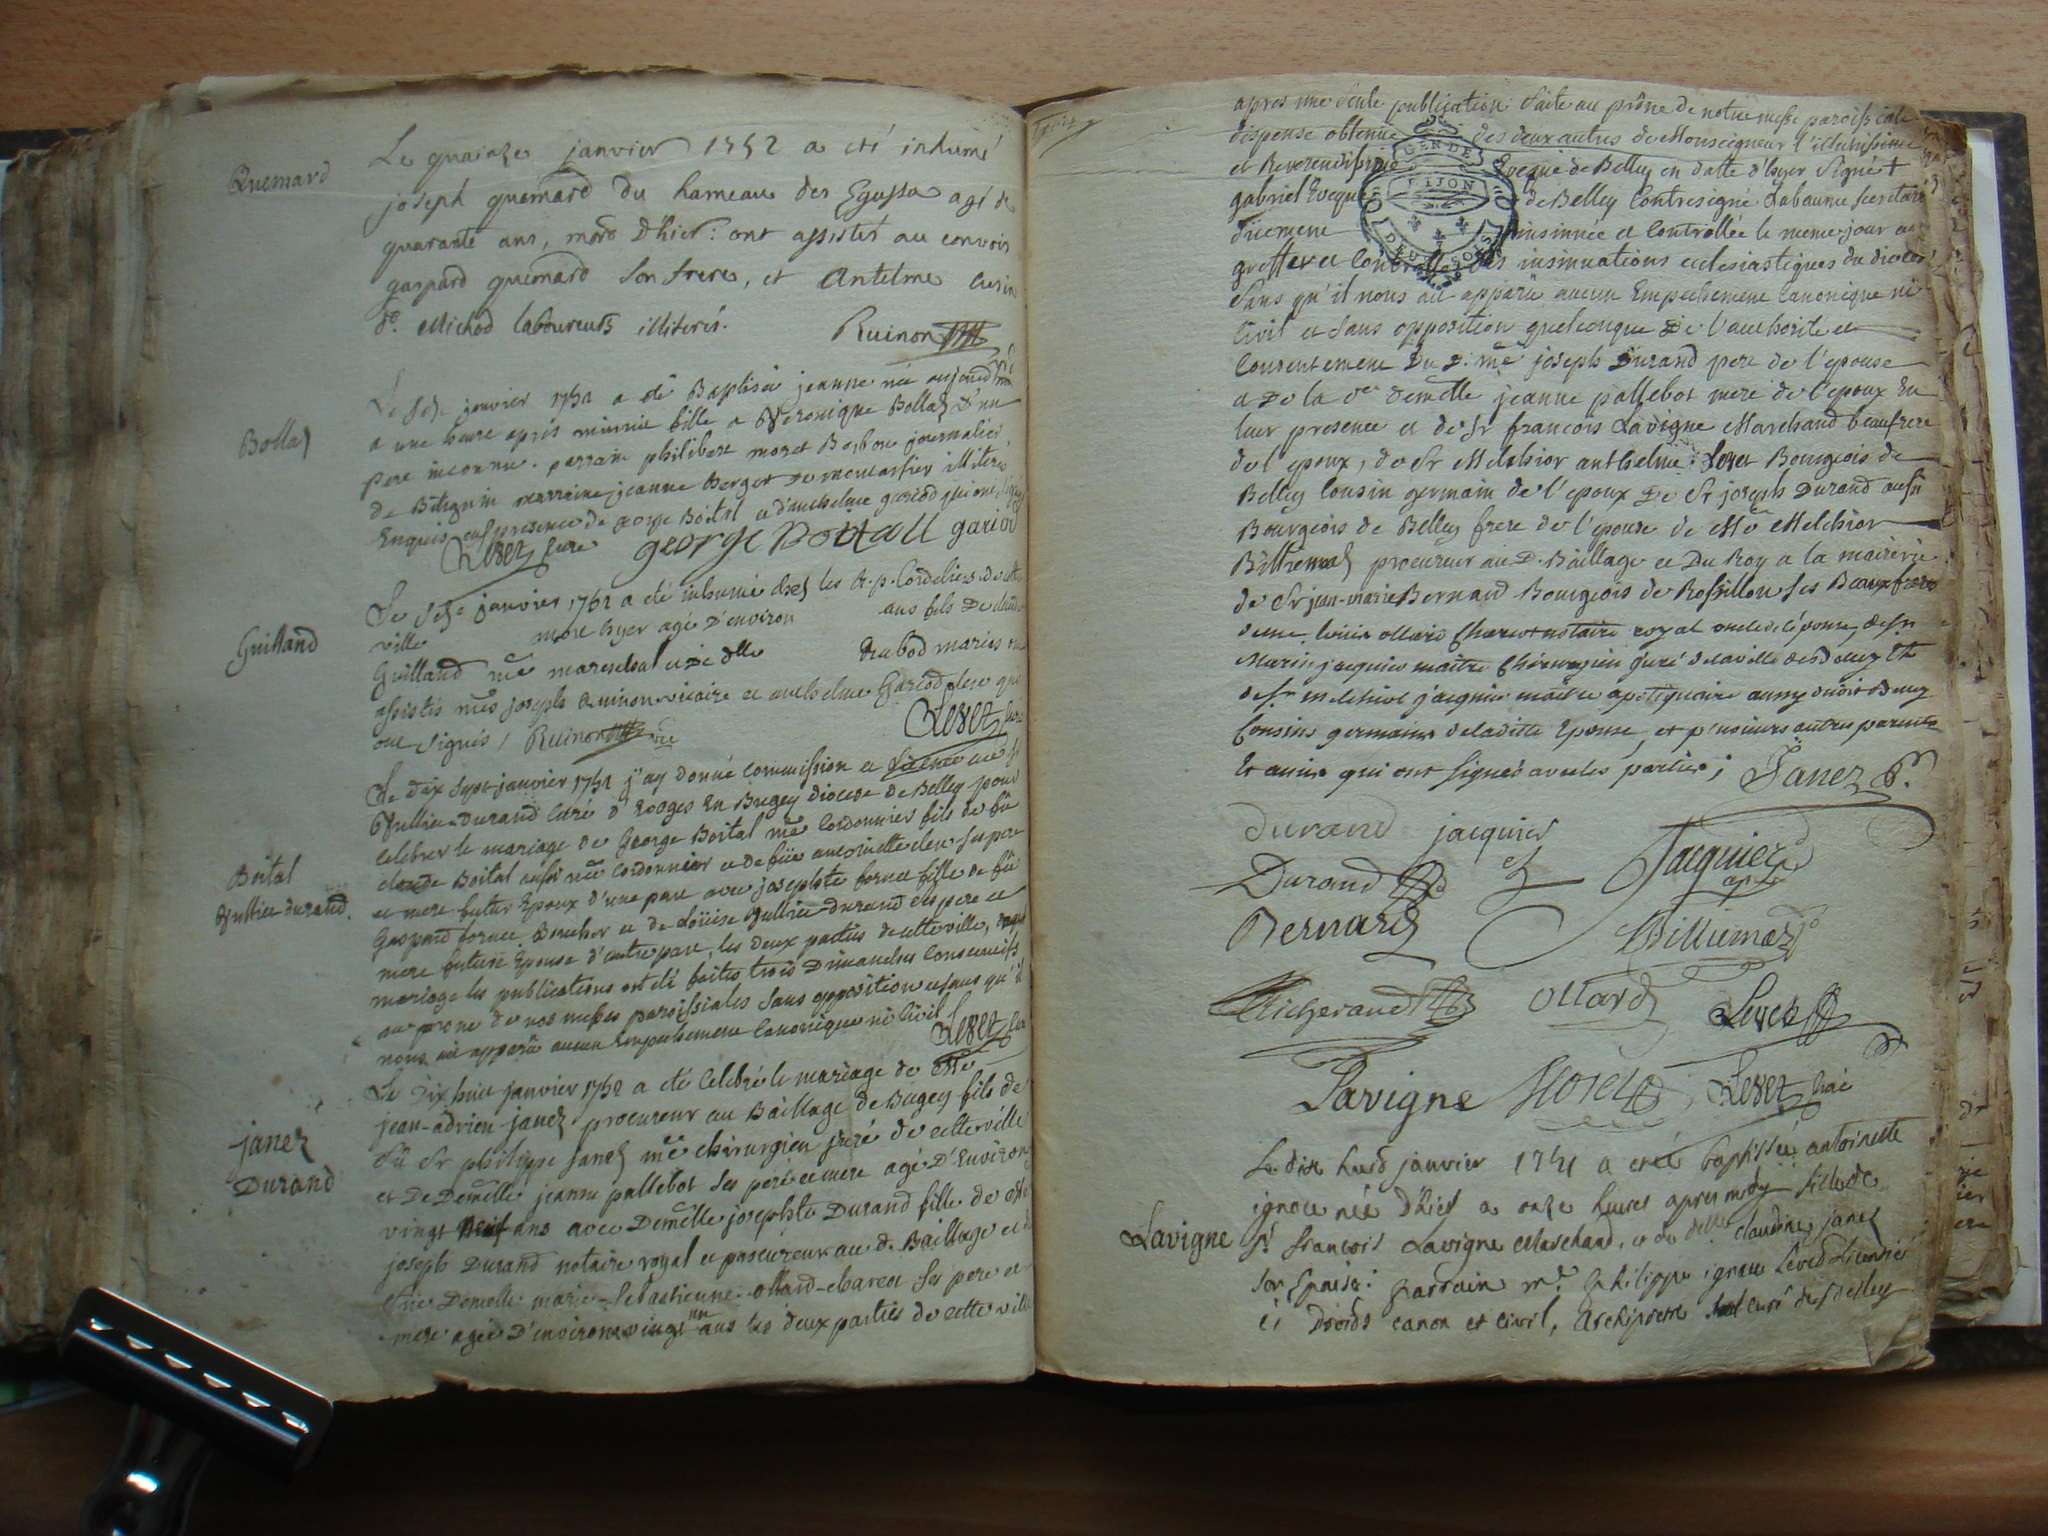 Quemard
Le quainze janvier 1752 a eté inhumé
joseph quemard du hameau des Egussa agé de
quarante ans, mord D'hier: ont assistés au convois
gaspard quemard son frere, et Antelme cusin
dt. Michod laboureurs illiterés.
Ruinon
Bollaz
Le seze janvier 1752 a été Baptisée jeanne née aujourd'huÿ
a une heure après minuit fille a Véronique Bollaz d'un
pere inconnu. parrain philibert moret Barbou journalier
de Bitignin marraine jeanne Berger de montarfier illiterés
Enquis en presence de george Boital et d'anthelme gariod qui ont signé
Levet curé george Boitall gariod
Guilland
Le seze janvier 1752 a été inhumé chez les R. p. Cordeliers de cette
ville mort hyer agé d'environ ans fils de claude
Guilland me mareschal et de dlle Rubod mariés
assistés mes joseph Ruinon vicaire et anthelme Gariod clerc qui
ont signés / Ruinon vic Levet curé
Boital
Vullier durand.
Le dix sept janvier 1752 j'ay donné commission et licence au sr
Vullier-Durand Curé d'Izoges En Bugey diocese de Belley pour
celebrer le mariage de George Boital me Cordonnier fils de fû
claude Boital aussi me Cordonnier et de fûe antoinette clerc ses pere
et mere futur Epoux d'une part avec josephte fornet fille de fû
Gaspard fornet Boucher et de Loüise Vullier-durand ses pere et
mere future Epouse d'autre part, les deux parties de cette ville,
mariage les publications ont été faites trois Dimanches Consecutifs
au prone de nos messes paroissiales sans opposition et sans qu'il
nous ait apparû aucun Empechement Canonique ni Civil Levet curé
janez
Durand
Le Dix huit janvier 1752 a été Célébré le mariage de Me
jean-adrien janez procureur au Bailliage de Bugey fils de
fû Sr philippe janez me chirurgien juré de cette ville
et De Demelle jeanne pallebot ses pere et mere agé D'Environ
vingt neuf ans avec Demelle josephte Durand fille de Me
joseph Durand notaire royal et procureur au d. Bailliage et de
fûe Demelle marie-Sebastienne ollard-charcot ses pere et
mere agée D'environ vingt un ans les deux parties de cette ville
apres une seule publication faite au prône de notre messe paroissiale
dispense obtenue des deux autres de Monseigneur l'illustrissime
et Reverendissime Eveque de Belley en datte d'hyer Signé †
gabriel Eveque de Belley Contresigné Labaume secretaire
duement insinuée et Controllée le meme jour au
greffe et Controlle des insinuations ecclesiastiques du diocese
sans qu'il nous ait apparu aucun Empechement Canonique ni
Civil et sans opposition quelconque De l'authorité et
Consentement du d. me joseph Durand pere de l'epouse
a De la de demelle jeanne pallebot mere de l'epoux En
leur presence et de sr francois Lavigne Marchand beaufrere
de l'epoux, de sr Melchior anthelme Levet Bourgeois de
Belley Cousin germain de l'epoux De Sr joseph Durand aussi
Bourgeois de Belley frere de l'epouse de Me Melchior
Billiemaz procureur au D. Bailliage et Du Roy a la mairerie
de Sr jean-marie Bernard Bourgeois de Rossillon ses Beaux freres
de me louis ollard Charcot notaire royal oncle de l'épouse, de sr
Marin jacquier maitre Chirurgien juré de la ville
de sr melchior jacquier maitre apotiquaire
Cousins germains de laditte Epouse, et plusieurs autres parents
Et amis qui ont signés avec les parties; Janez pr.
durand jacquier
Durand Jacquier
apre
Bernard Billiemaz
Richerand ollard Levet
Lavigne Levet curé
Lavigne
Le dix huid janvier 1752 a etée baptissée antoinette
ignace née D'hier a onze heures apres midy fille de
sr. francois Lavigne Marchand, et de delle claudine janez
son Epouse: parrain mre. philippe ignace Levet Licencié
ès Droids canon et civil, Archiprêtre curé de Belley
GEN DE
DIJON
DEUX SOLS